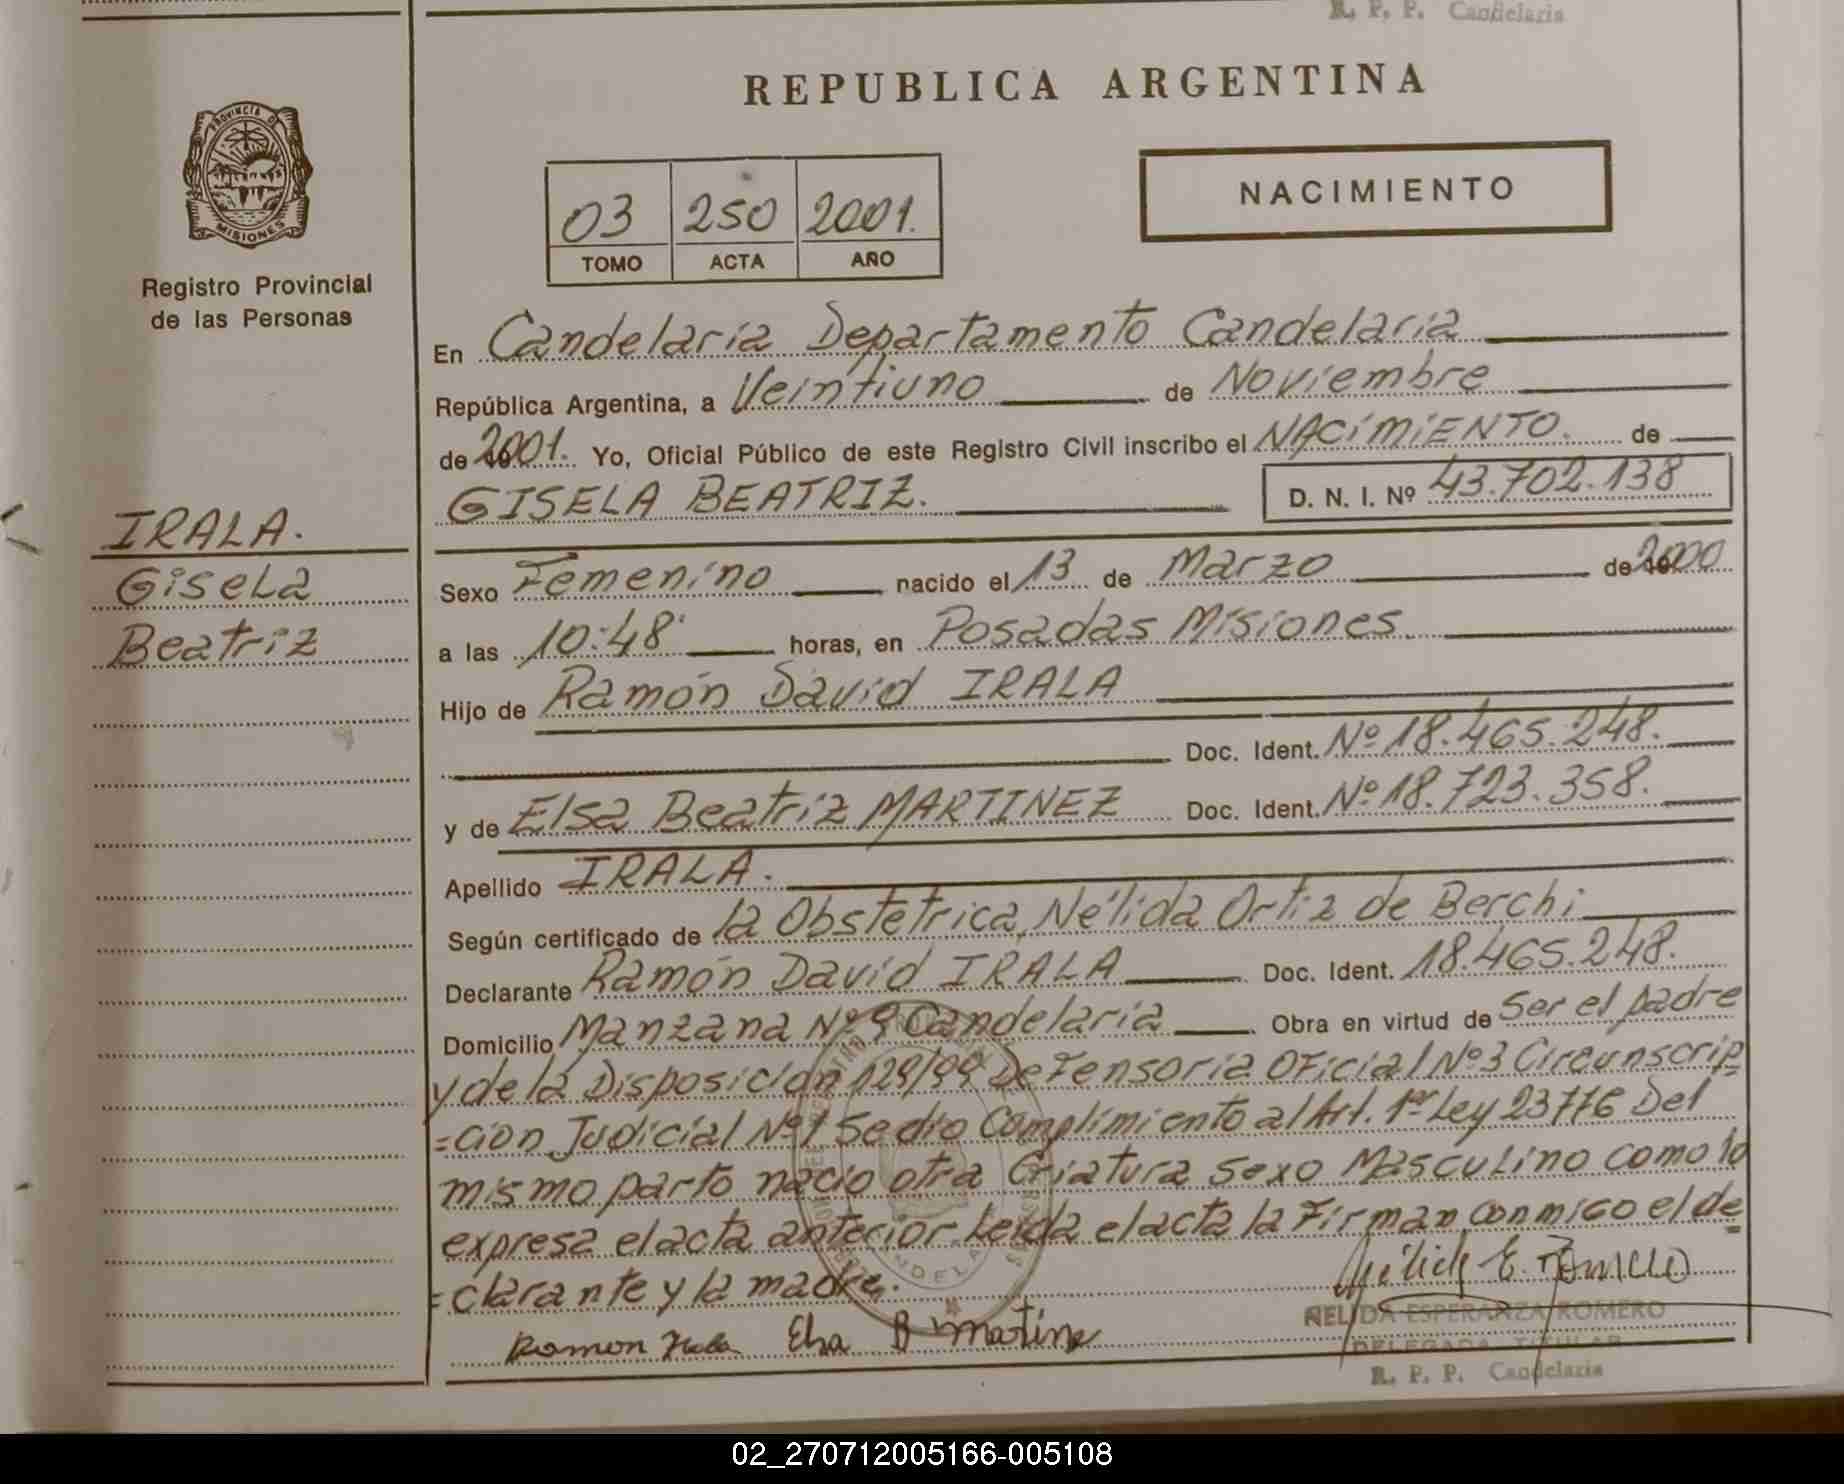 R. P. P. Candelaria
REPUBLICA ARGENTINA
PROVINCIA DE
MISIONES
Registro Provincial
de las Personas
03 250 2001.
TOMO ACTA AÑO
NACIMIENTO
En Candelaria Departamento Candelaria
República Argentina, a Veintiuno de Noviembre
de 2001. Yo, Oficial Público de este Registro Civil inscribo el NACIMIENTO. de
GISELA BEATRIZ. D. N. I. Nº 43.702.138
IRALA.
Gisela
Beatriz
Sexo Femenino nacido el 13 de Marzo de 2000
a las 10:48' horas, en Posadas Misiones.
Hijo de Ramón David IRALA
Doc. Ident. Nº 18.465.248.
y de Elsa Beatriz MARTINEZ Doc. Ident. Nº 18.723.358.
Apellido IRALA.
Según certificado de la Obstetrica, Nélida Ortiz de Berchi
Declarante Ramón David IRALA Doc. Ident. 18.465.248.
Domicilio Manzana Nº 9 Candelaria Obra en virtud de Ser el padre
y de la Disposición 129/99 Defensoria Oficial Nº 3 Circunscrip=
=ción Judicial Nº 1 Se dio Complimiento al Art. 1er Ley 23776 Del
mismo parto nacio otra Criatura Sexo Masculino como lo
expresa el acta anterior. Leida el acta la Firman conmigo el de=
=clarante y la madre.
Ramon Irala Elsa B Martine
NELIDA ESPERANZA ROMERO
DELEGADA TITULAR
R. P. P. Candelaria
02_270712005166-005108